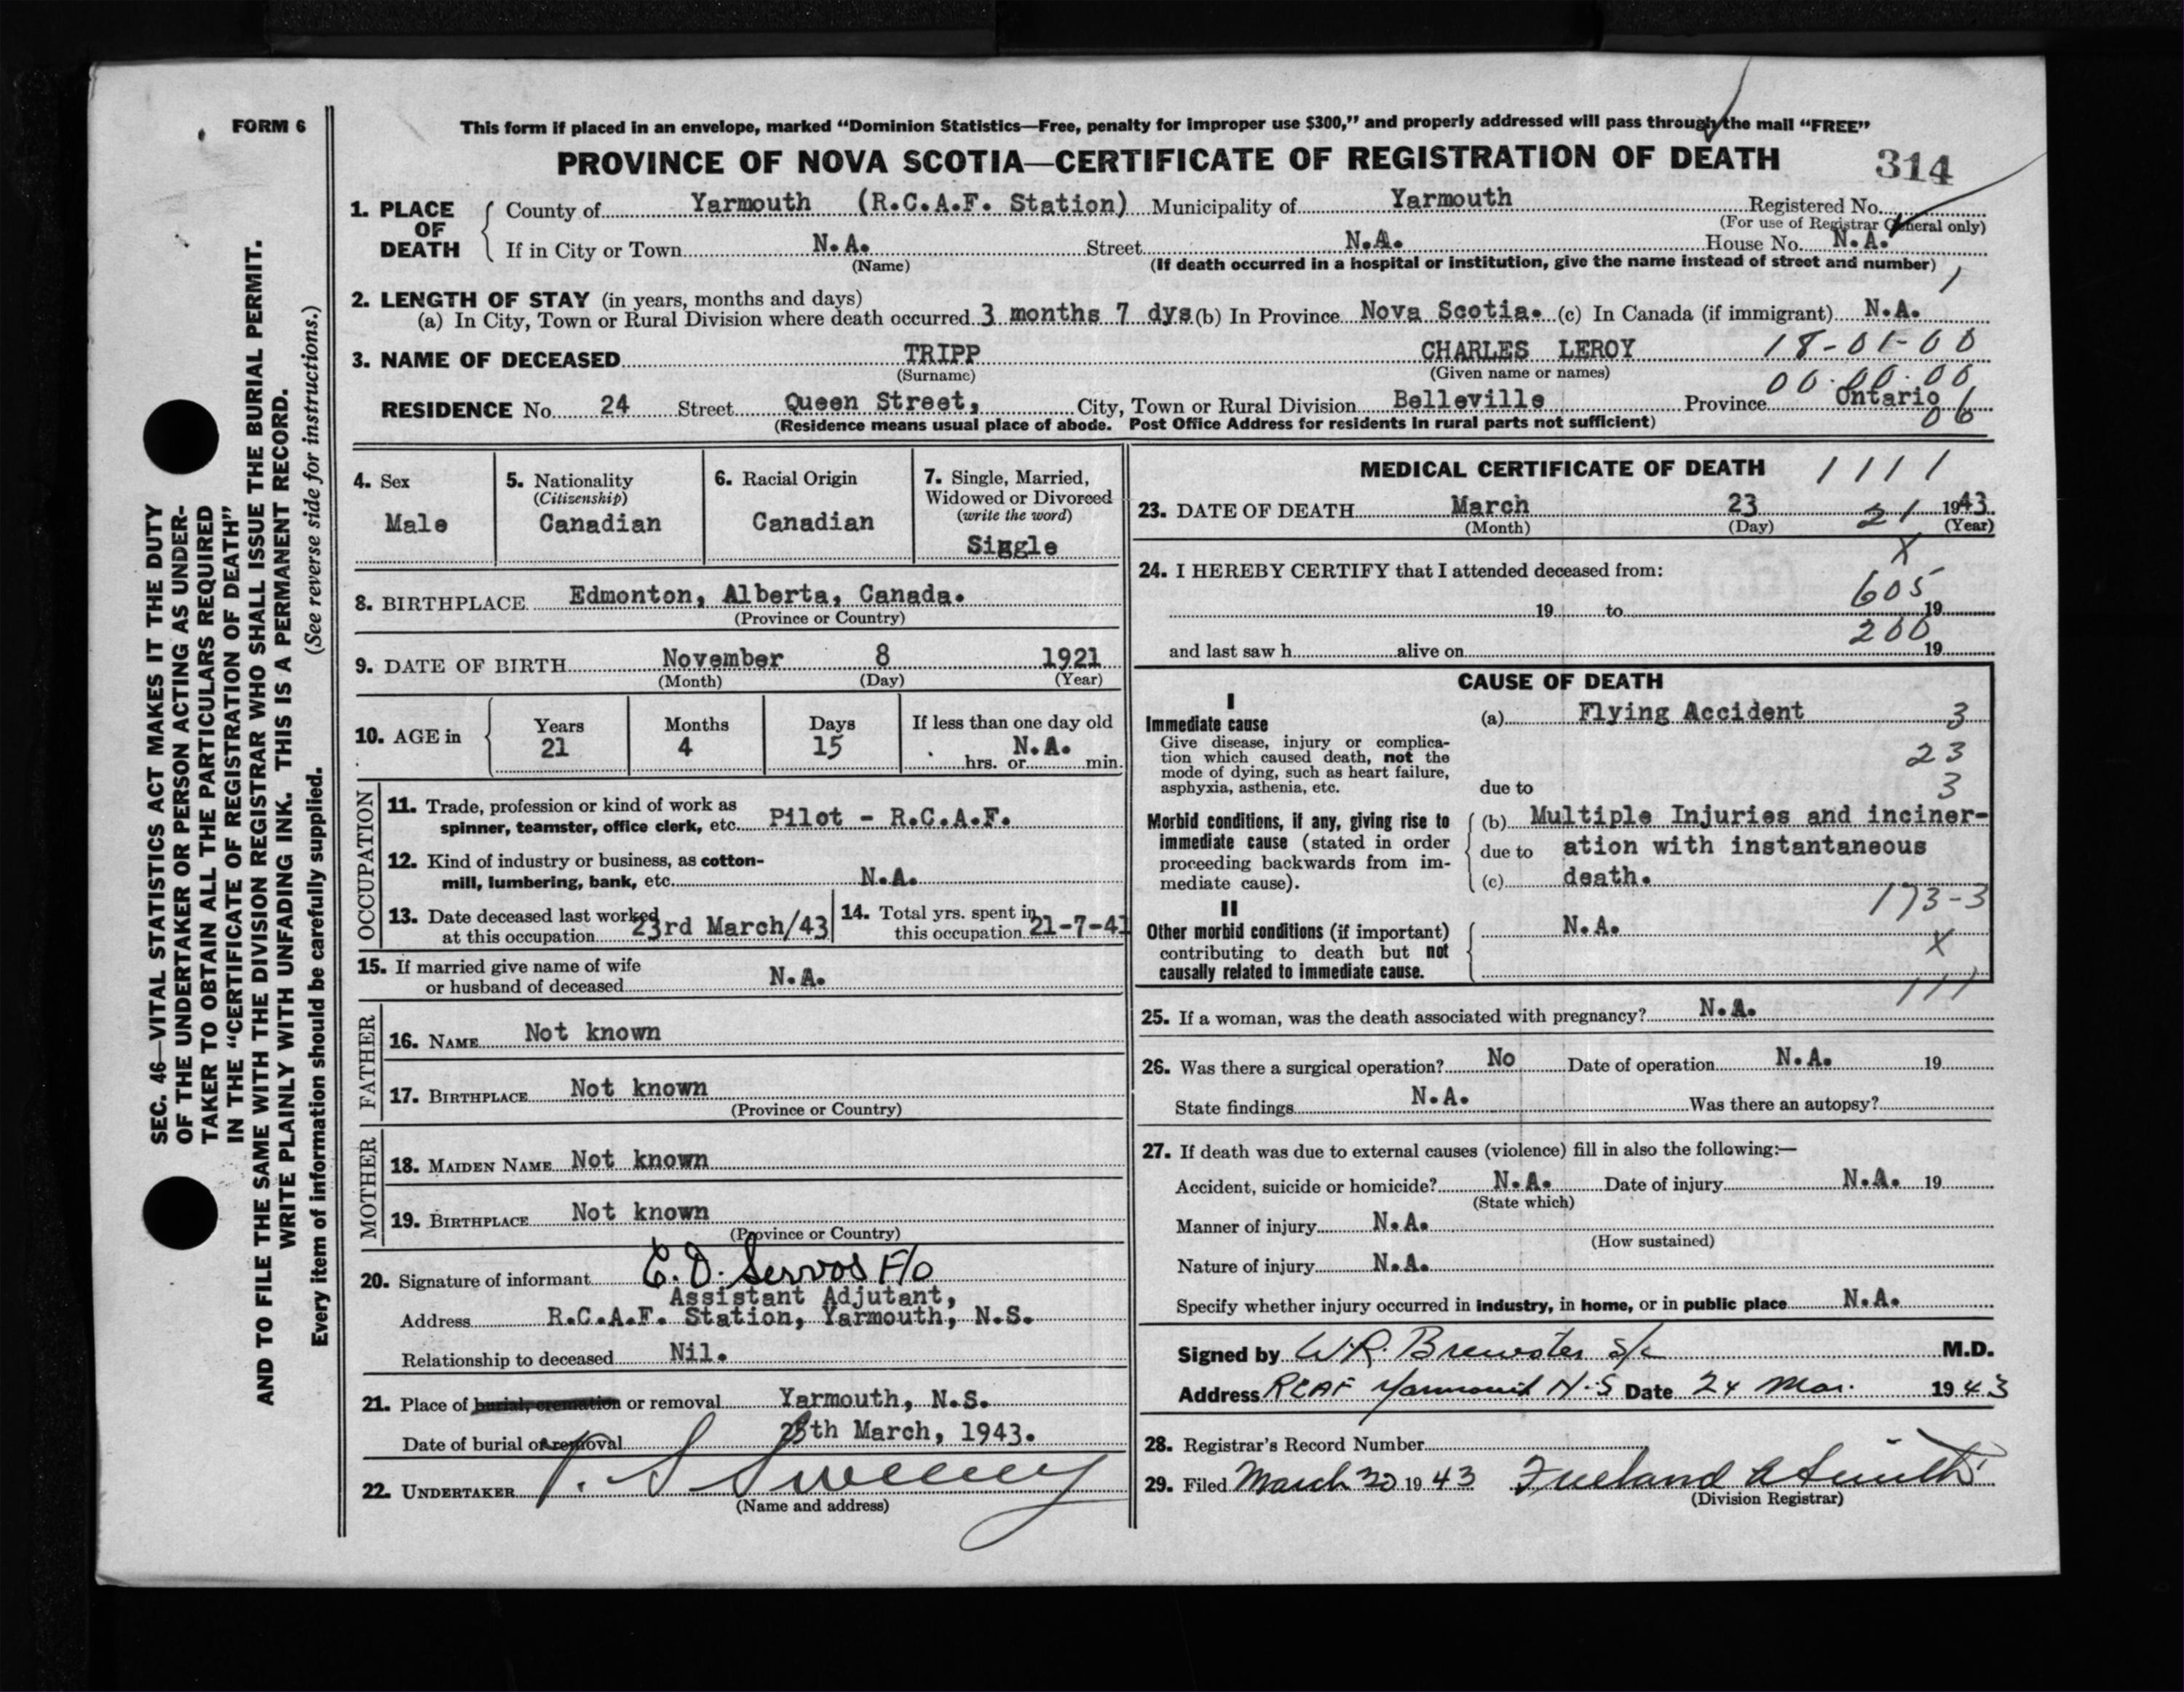 FORM 6
This form if placed in an envelope, marked “Dominion Statistics—Free, penalty for improper use $300,” and properly addressed will pass through the mail “FREE”
PROVINCE OF NOVA SCOTIA—CERTIFICATE OF REGISTRATION OF DEATH 314
1. PLACE OF DEATH
County of Yarmouth (R.C.A.F. Station) Municipality of Yarmouth Registered No.
(For use of Registrar General only)
If in City or Town N.A. Street N.A. House No. N.A.
(Name) (If death occurred in a hospital or institution, give the name instead of street and number)
1
2. LENGTH OF STAY (in years, months and days)
(a) In City, Town or Rural Division where death occurred 3 months 7 dys (b) In Province Nova Scotia. (c) In Canada (if immigrant) N.A.
3. NAME OF DECEASED TRIPP CHARLES LEROY 18-01-00
(Surname) (Given name or names) 00.00.00
RESIDENCE No. 24 Street Queen Street, City, Town or Rural Division Belleville Province Ontario
06
(Residence means usual place of abode. Post Office Address for residents in rural parts not sufficient)
4. Sex
Male
5. Nationality
(Citizenship)
Canadian
6. Racial Origin
Canadian
7. Single, Married,
Widowed or Divorced
(write the word)
Single
8. BIRTHPLACE Edmonton, Alberta, Canada.
(Province or Country)
9. DATE OF BIRTH November 8 1921
(Month) (Day) (Year)
10. AGE in
Years Months Days If less than one day old
21 4 15 N.A.
hrs. or min.
OCCUPATION
11. Trade, profession or kind of work as
spinner, teamster, office clerk, etc. Pilot - R.C.A.F.
12. Kind of industry or business, as cotton-
mill, lumbering, bank, etc. N.A.
13. Date deceased last worked
at this occupation 23rd March/43
14. Total yrs. spent in
this occupation 21-7-41
15. If married give name of wife
or husband of deceased N.A.
FATHER
16. NAME Not known
17. BIRTHPLACE Not known
(Province or Country)
MOTHER
18. MAIDEN NAME Not known
19. BIRTHPLACE Not known
(Province or Country)
20. Signature of informant E. D. Servos F/o
Assistant Adjutant,
Address R.C.A.F. Station, Yarmouth, N.S.
Relationship to deceased Nil.
21. Place of burial, cremation or removal Yarmouth, N.S.
Date of burial or removal th March, 1943.
22. UNDERTAKER Sweeney
(Name and address)
MEDICAL CERTIFICATE OF DEATH 1111
23. DATE OF DEATH March 23 21 1943
(Month) (Day) (Year)
X
24. I HEREBY CERTIFY that I attended deceased from:
605
19 to 19
200
and last saw h alive on 19
CAUSE OF DEATH
I
Immediate cause (a) Flying Accident 3
Give disease, injury or complica-
tion which caused death, not the
mode of dying, such as heart failure,
asphyxia, asthenia, etc. due to
23
3
Morbid conditions, if any, giving rise to
immediate cause (stated in order
proceeding backwards from im-
mediate cause).
(b) Multiple Injuries and inciner-
due to ation with instantaneous
(c) death.
173-3
II
Other morbid conditions (if important)
contributing to death but not
causally related to immediate cause.
N.A.
X
111
25. If a woman, was the death associated with pregnancy? N.A.
26. Was there a surgical operation? No Date of operation N.A. 19
State findings N.A. Was there an autopsy?
27. If death was due to external causes (violence) fill in also the following:—
Accident, suicide or homicide? N.A. Date of injury N.A. 19
(State which)
Manner of injury N.A.
(How sustained)
Nature of injury N.A.
Specify whether injury occurred in industry, in home, or in public place N.A.
Signed by W.R. Brewster S/L M.D.
Address RCAF Yarmouth N.S Date 24 Mar. 1943
28. Registrar's Record Number
29. Filed March 1943 Freeland A Smith
(Division Registrar)
SEC. 46—VITAL STATISTICS ACT MAKES IT THE DUTY
OF THE UNDERTAKER OR PERSON ACTING AS UNDER-
TAKER TO OBTAIN ALL THE PARTICULARS REQUIRED
IN THE “CERTIFICATE OF REGISTRATION OF DEATH”
AND TO FILE THE SAME WITH THE DIVISION REGISTRAR WHO SHALL ISSUE THE BURIAL PERMIT.
WRITE PLAINLY WITH UNFADING INK. THIS IS A PERMANENT RECORD.
Every item of information should be carefully supplied. (See reverse side for instructions.)